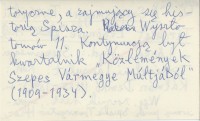 toryczne, a zajmujący się his-
torią Spisza. Wyszło
tomów 11. Kontynuacją był
kwartalnik „Közlemények
Szepes Vármegye Múltjából"
(1909-1934).